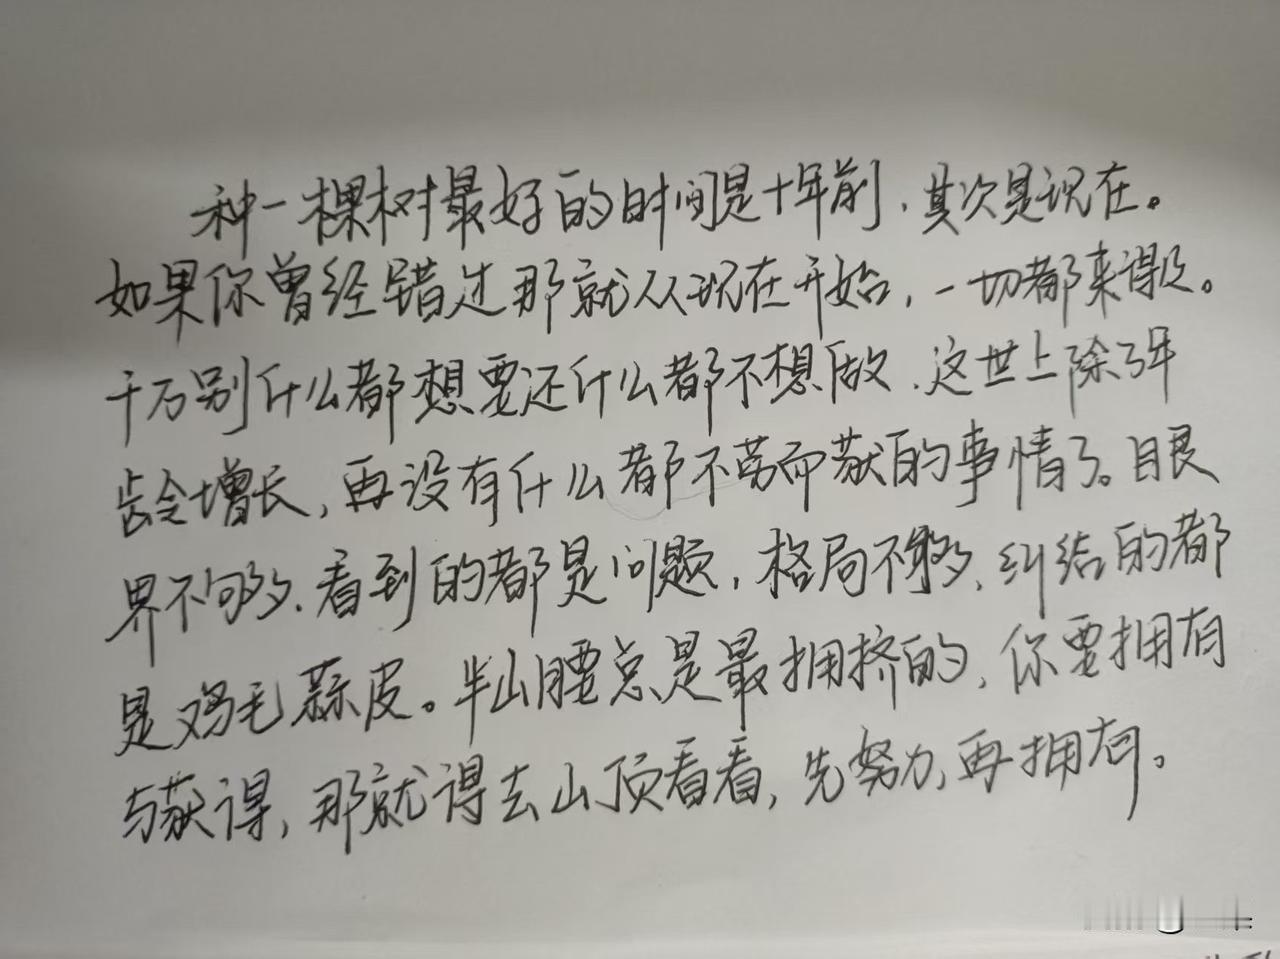 种一棵树最好的时间是十年前，其次是现在。
如果你曾经错过那就从现在开始，一切都来得及。
千万别什么都想要还什么都不想做，这世上除了年
龄会增长，再没有什么都不劳而获的事情了。眼
界不够，看到的都是问题，格局不够，纠结的都
是鸡毛蒜皮。半山腰总是最拥挤的，你要拥有
与获得，那就得去山顶看看，先努力，再拥有。